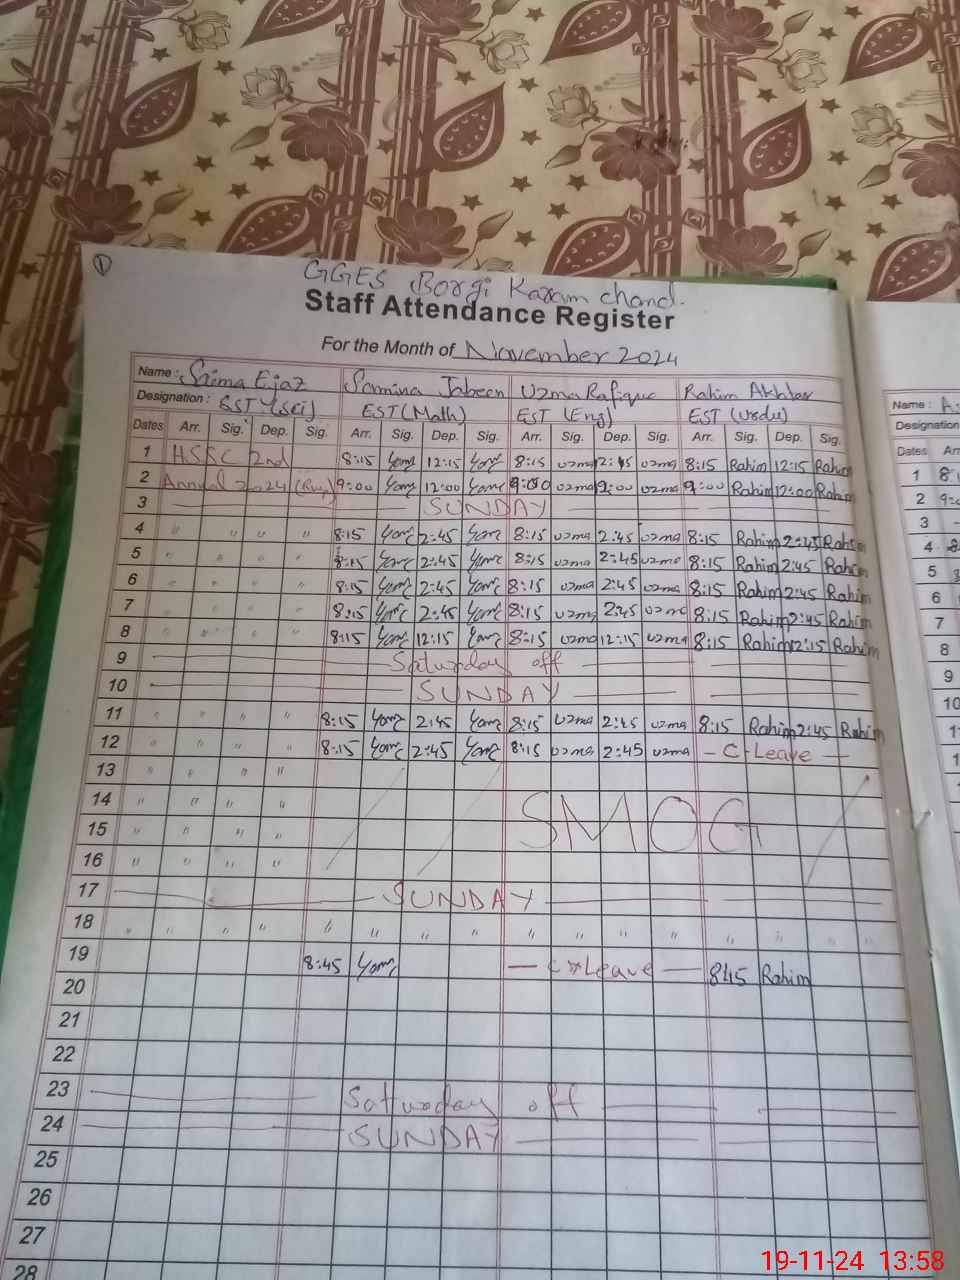 1
GGES Borgi Karam chand.
Staff Attendance Register
For the Month of November 2024
Name: Saima Ejaz Samina Jabeen Uzma Rafique Rahim Akhtar
Name:
Designation: SST (Sci) EST (Math) EST (Eng) EST (Urdu)
Designation
Dates Arr. Sig. Dep. Sig. Arr. Sig. Dep. Sig. Arr. Sig. Dep. Sig. Arr. Sig. Dep. Sig.
Dates
1 HSSC 2nd 8:15 12:15 8:15 uzma 12:15 uzma 8:15 Rahim 12:15 Rahim
1
2 Annual 2024 9:00 12:00 9:00 uzma 12:00 uzma 9:00 Rahim 12:00 Rahim
2
3 SUNDAY
3
4 " " " " 8:15 2:45 8:15 uzma 2:45 uzma 8:15 Rahim 2:45 Rahim
4
5 " " " " 8:15 2:45 8:15 uzma 2:45 uzma 8:15 Rahim 2:45 Rahim
5
6 " " " " 8:15 2:45 8:15 uzma 2:45 uzma 8:15 Rahim 2:45 Rahim
6
7 " " " " 8:15 2:45 8:15 uzma 2:45 uzma 8:15 Rahim 2:45 Rahim
7
8 " " " " 8:15 12:15 8:15 uzma 12:15 uzma 8:15 Rahim 12:15 Rahim
8
9 Saturday off
9
10 SUNDAY
10
11 " " " " 8:15 2:45 8:15 uzma 2:45 uzma 8:15 Rahim 2:45 Rahim
12 " " " " 8:15 2:45 8:15 uzma 2:45 uzma - C-Leave -
13 " " " "
14 " " " " SMOG
15 " " " "
16 " " " "
17 SUNDAY
18 " " " " " " " " " " " " " " " "
19 8:45 - C Leave - 8:15 Rahim
20
21
22
23 Saturday off
24 SUNDAY
25
26
27
28
19-11-24 13:58